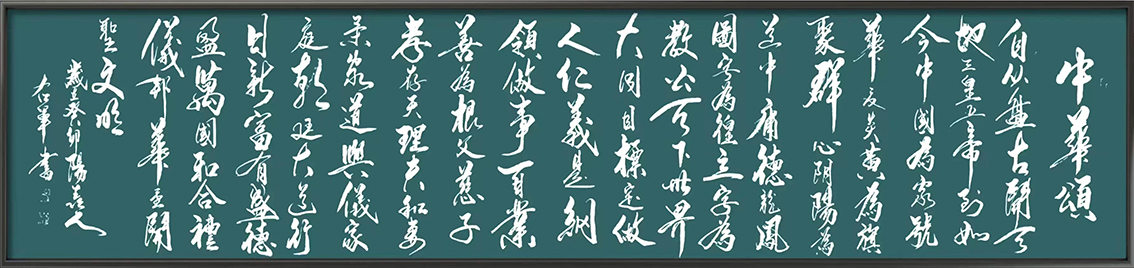 中華頌
自从盤古開天
地三皇五帝到如
今中國為家號
華夏炎黄為旗
聚群心阴陽為
道中庸德龍鳳
圖容為徑立字為
教公天下世界
大同目標定做
人仁義是綱
領做事百業
善為根父慈子
孝存天理夫和妻
柔家道興儀家
庭大道行
日新富有盛德
盈萬國和合禮
儀邦華夏開
聖文明
歲癸卯陽善人
右軍書